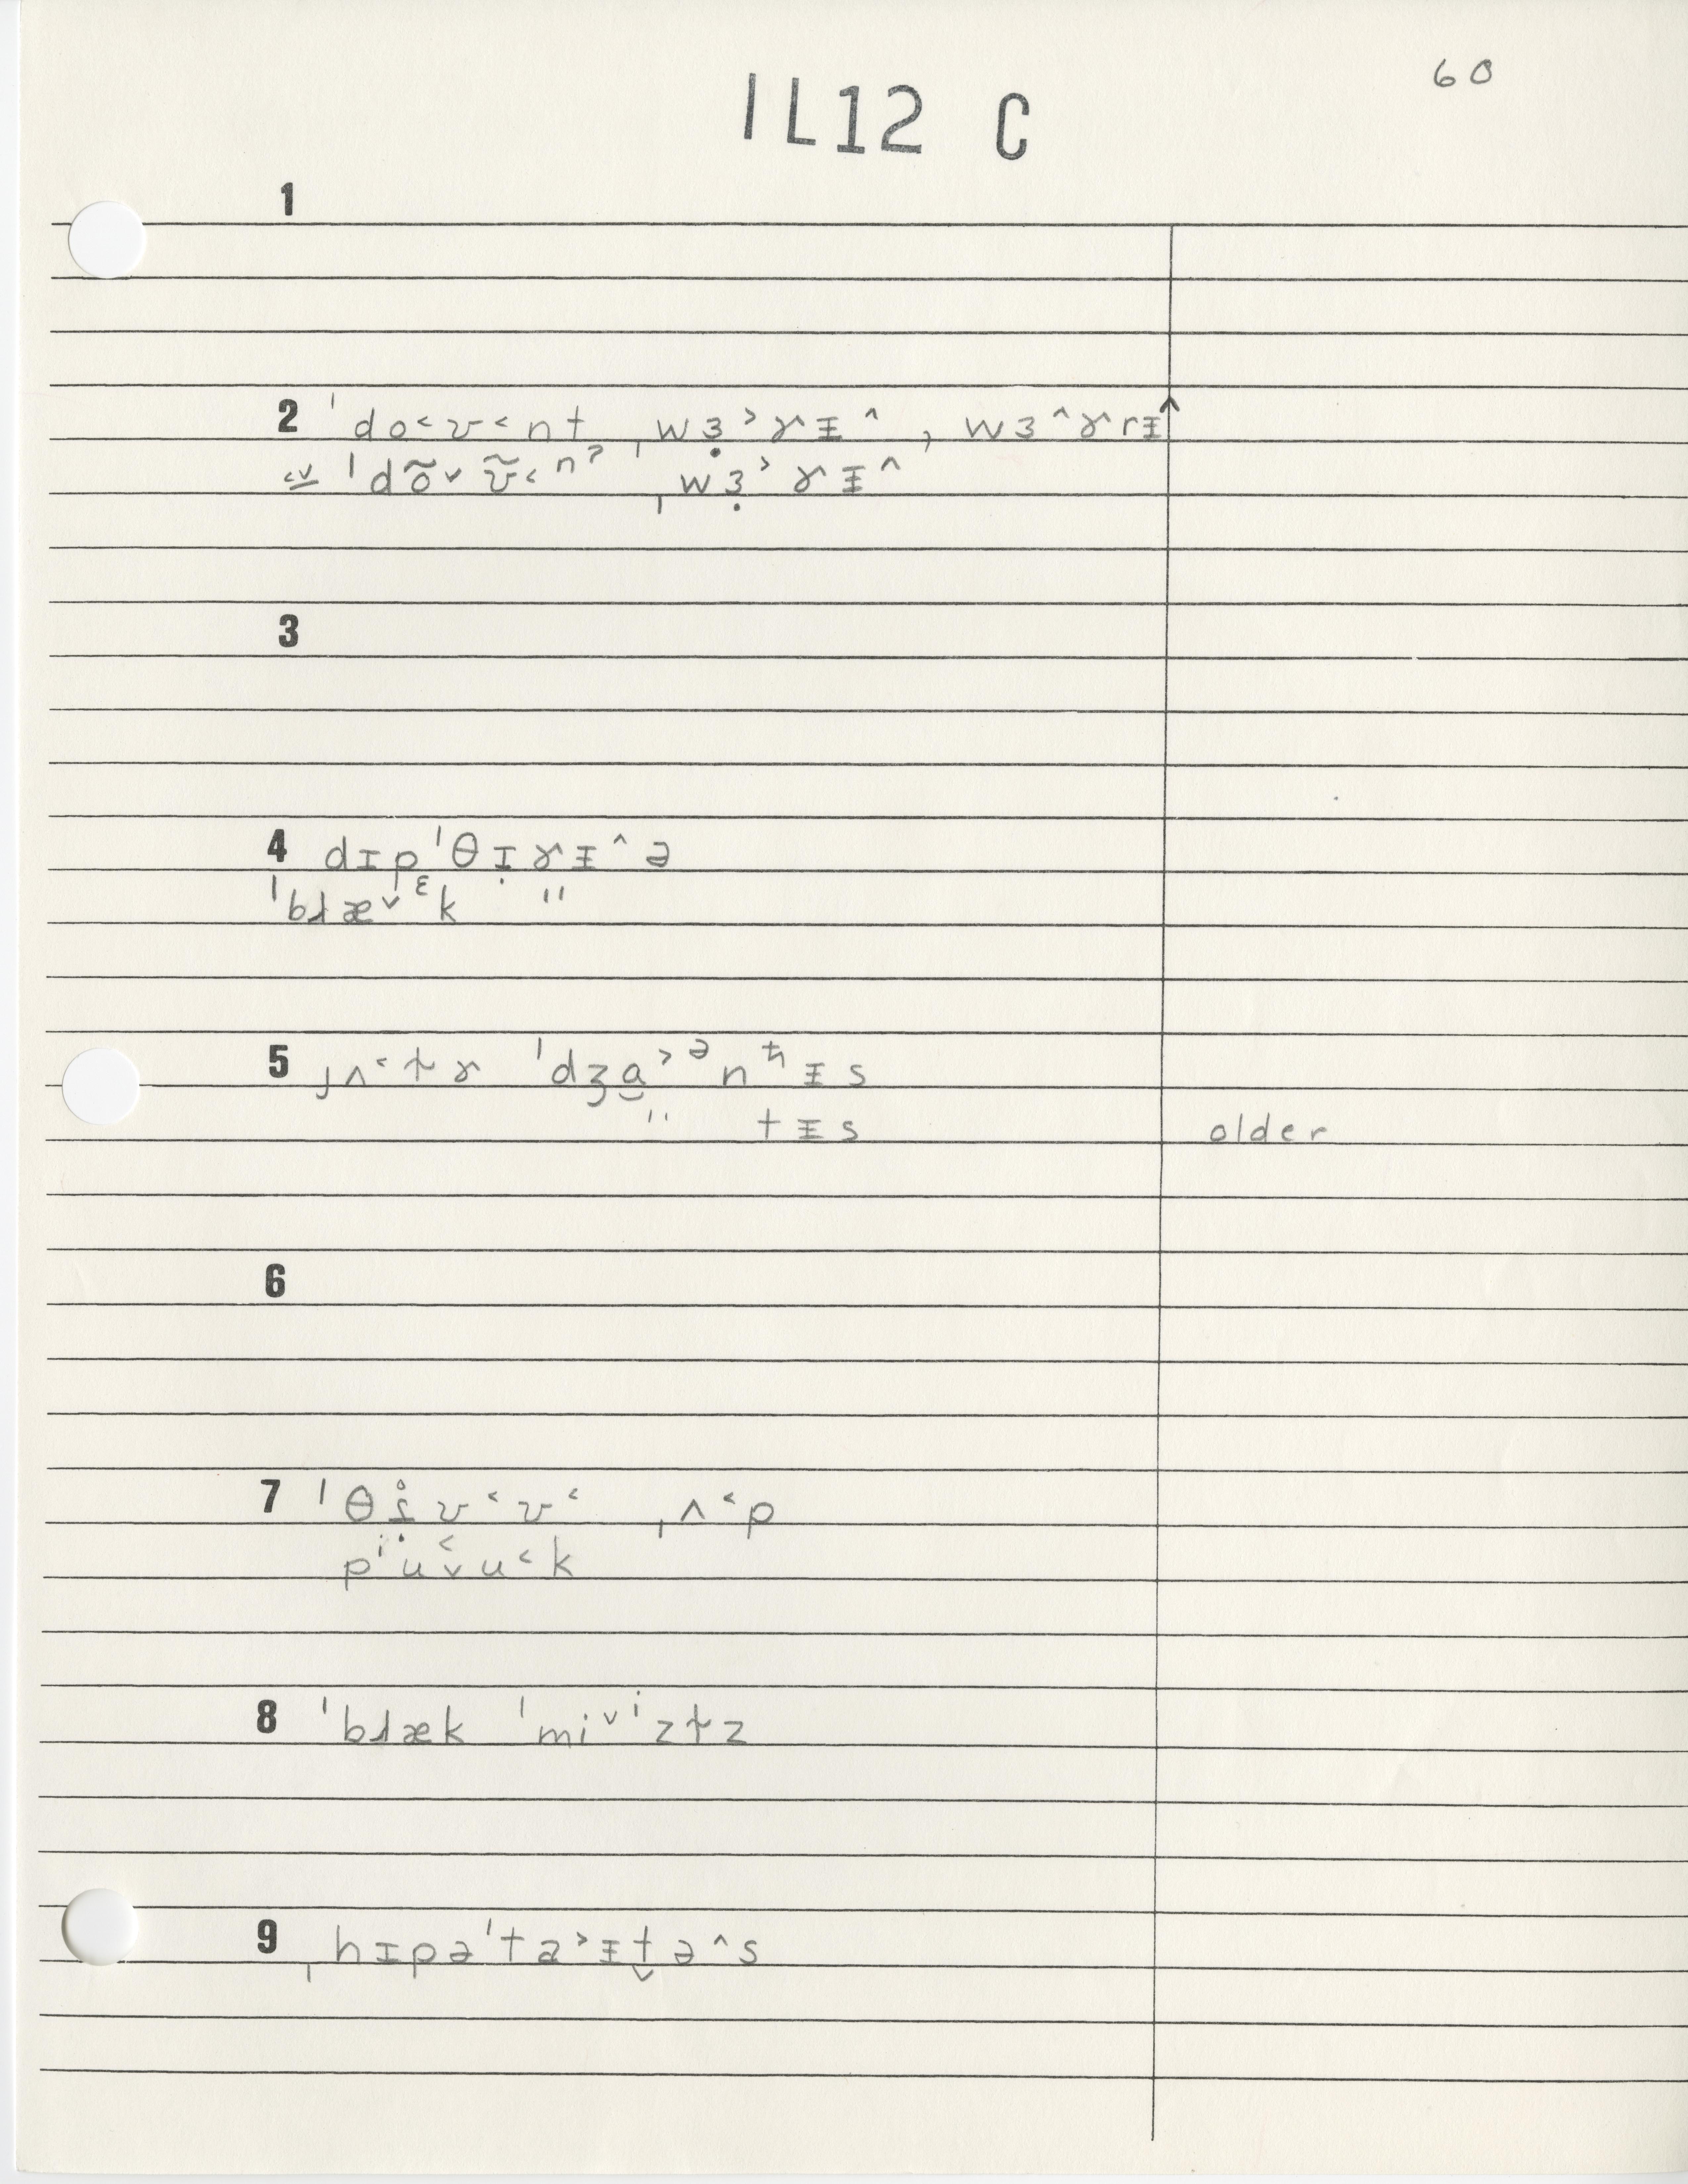 60
IL12 C
1
2 ˈdo˂ʊ˂nt ˌwɜ̣˃ɤɪ̵˄, wɜ˄ɤrɪ̵˄
ˈdõ˅ʊ̃˂ⁿˀ ˌwɜ̣˃ɤɪ̵˄
3
4 dɪpˈθɪ̣ɤɪ̵˄ə
ˈblæ˅ᵋk "
5 jʌ˂tɤ ˈdʒa̯˃ᵊntɪ̵s
" tɪ̵s older
6
7 ˈθʊ˂ʊ˂ ˌʌ˂p
pⁱu˂˅u˂k
8 ˈblæk ˈmi˅ⁱzɫz
9 ˌhɪpəˈta˃ɪ̵t̬ə˄s